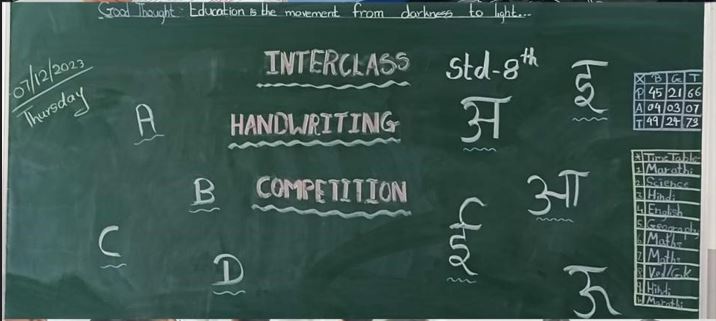 Good Thought: Education is the movement from darkness to light...
07/12/2023
Thursday
INTERCLASS
HANDWRITING
COMPETITION
Std-8th
A
B
C
D
अ
इ
आ
ई
ऊ
X B G T
P 45 21 66
A 04 03 07
T 49 24 73
Time Table
1 Marathi
2 Science
3 Hindi
4 English
5 Geography
6 Maths
7 Maths
8 Ved/G.K
9 Hindi
10 Marathi